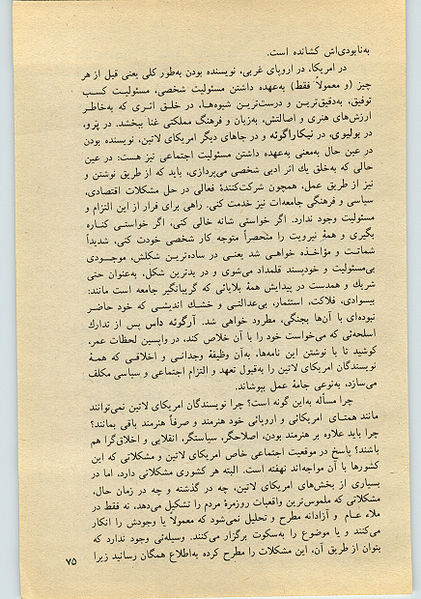 به‌نابودی‌اش کشانده است.
در امریکا، در اروپای غربی، نویسنده بودن به‌طور کلی یعنی قبل از هر
چیز (و معمولاً فقط) به‌عهده داشتن مسئولیت شخصی، مسئولیت کسب
توفیق، به‌دقیق‌ترین و درست‌ترین شیوه‌ها، در خلق اثری که به‌خاطر
ارزش‌های هنری و اصالتش، به‌زبان و فرهنگ مملکتی غنا ببخشد. در پرو،
در بولیوی، در نیکاراگوئه و در جاهای دیگر امریکای لاتین، نویسنده بودن
در عین حال به‌معنی به‌عهده داشتن مسئولیت اجتماعی نیز هست: در عین
حالی که به‌خلق یك اثر ادبی شخصی می‌پردازی، باید که از طریق نوشتن و
نیز از طریق عمل، همچون شرکت‌کنندهٔ فعالی در حل مشکلات اقتصادی،
سیاسی و فرهنگی جامعه‌ات نیز خدمت کنی. راهی برای فرار از این التزام و
مسئولیت وجود ندارد. اگر خواستی شانه خالی کنی، اگر خواستی کناره
بگیری و همهٔ نیرویت را منحصراً متوجه کار شخصی خودت کنی، شدیداً
شماتت و مؤاخذه خواهی شد یعنی در ساده‌ترین شکلش، موجودی
بی‌مسئولیت و خودپسند قلمداد می‌شوی و در بدترین شکل، به‌عنوان حتی
شریك و همدست در پیدایش همهٔ بلایائی که گریبانگیر جامعه است مانند:
بیسوادی، فلاکت، استثمار، بی‌عدالتی و خشك اندیشی که خود حاضر
نبوده‌ای با آن‌ها بجنگی، مطرود خواهی شد. آرگوئه داس پس از تدارك
اسلحه‌ئی که می‌خواست خود را با آن خلاص کند، در واپسین لحظات عمر،
کوشید تا با نوشتن این نامه‌ها، به‌آن وظیفهٔ وجدانی و اخلاقی که همهٔ
نویسندگان امریکای لاتین را به‌قبول تعهد و التزام اجتماعی و سیاسی مکلف
می‌سازد، به‌نوعی جامهٔ عمل بپوشاند.
چرا مسأله به‌این گونه است؟ چرا نویسندگان امریکای لاتین نمی‌توانند
مانند همتای امریکائی و اروپائی خود هنرمند و صرفاً هنرمند باقی بمانند؟
چرا باید علاوه بر هنرمند بودن، اصلاحگر، سیاستگر، انقلابی و اخلاق‌گرا هم
باشند؟ پاسخ در موقعیت اجتماعی خاص امریکای لاتین و مشکلاتی که این
کشورها با آن مواجه‌اند نهفته است. البته هر کشوری مشکلاتی دارد، اما در
بسیاری از بخش‌های امریکای لاتین، چه در گذشته و چه در زمان حال،
مشکلاتی که ملموس‌ترین واقعیات روزمرهٔ مردم را تشکیل می‌دهد، نه فقط در
ملاء عام و آزادانه مطرح و تحلیل نمی‌شود که معمولاً یا وجودش را انکار
می‌کنند و یا موضوع را به‌سکوت برگزار می‌کنند. وسیله‌ئی وجود ندارد که
بتوان از طریق آن، این مشکلات را مطرح کرده به‌اطلاع همگان رسانید زیرا
۷۵